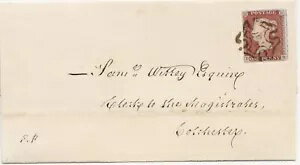 POSTAGE
Saml Witley Esquire
Clerk to the Magistrates,
Colchester.